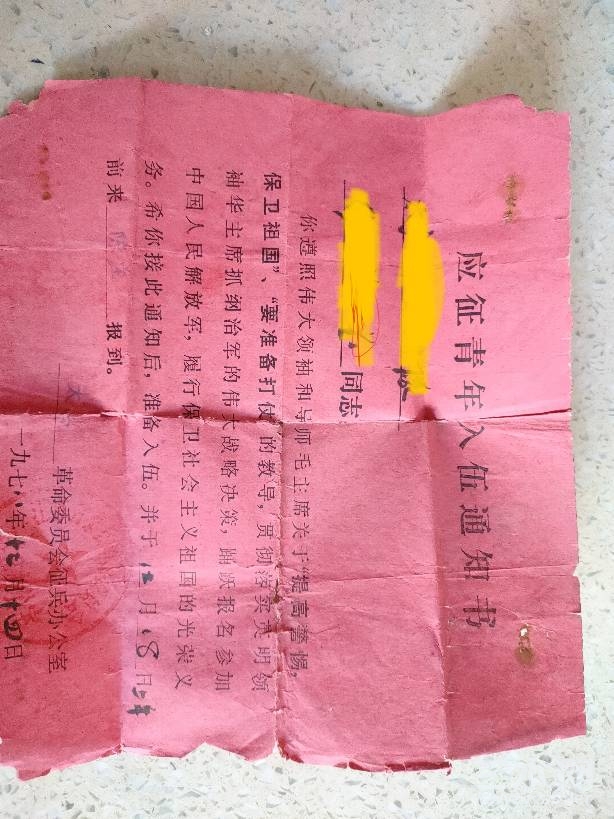 应征青年入伍通知书
同志
你遵照伟大领袖和导师毛主席关于“提高警惕，
保卫祖国”、“要准备打仗”的教导，贯彻落实英明领
袖华主席抓纲治军的伟大战略决策，踊跃报名参加
中国人民解放军，履行保卫社会主义祖国的光荣义
务。希你接此通知后，准备入伍。并于12月18日上午
前来 报到。
革命委员会征兵办公室
一九七八年十二月十四日